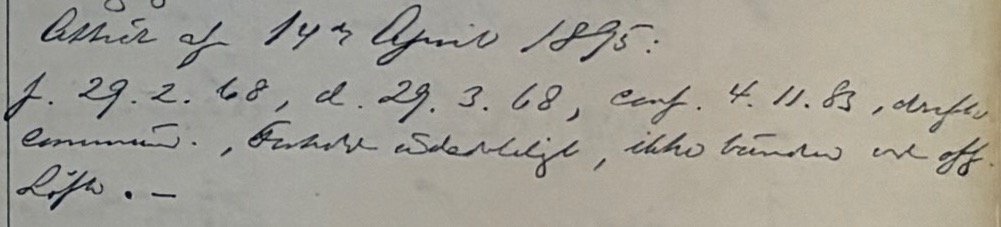 Attest af 14de April 1895:
f. 29.2.68, d. 29.3.68, conf. 4.11.83, drifter
commun., Forhold udadleligt, ikke bunden ved off.
Löfte. –